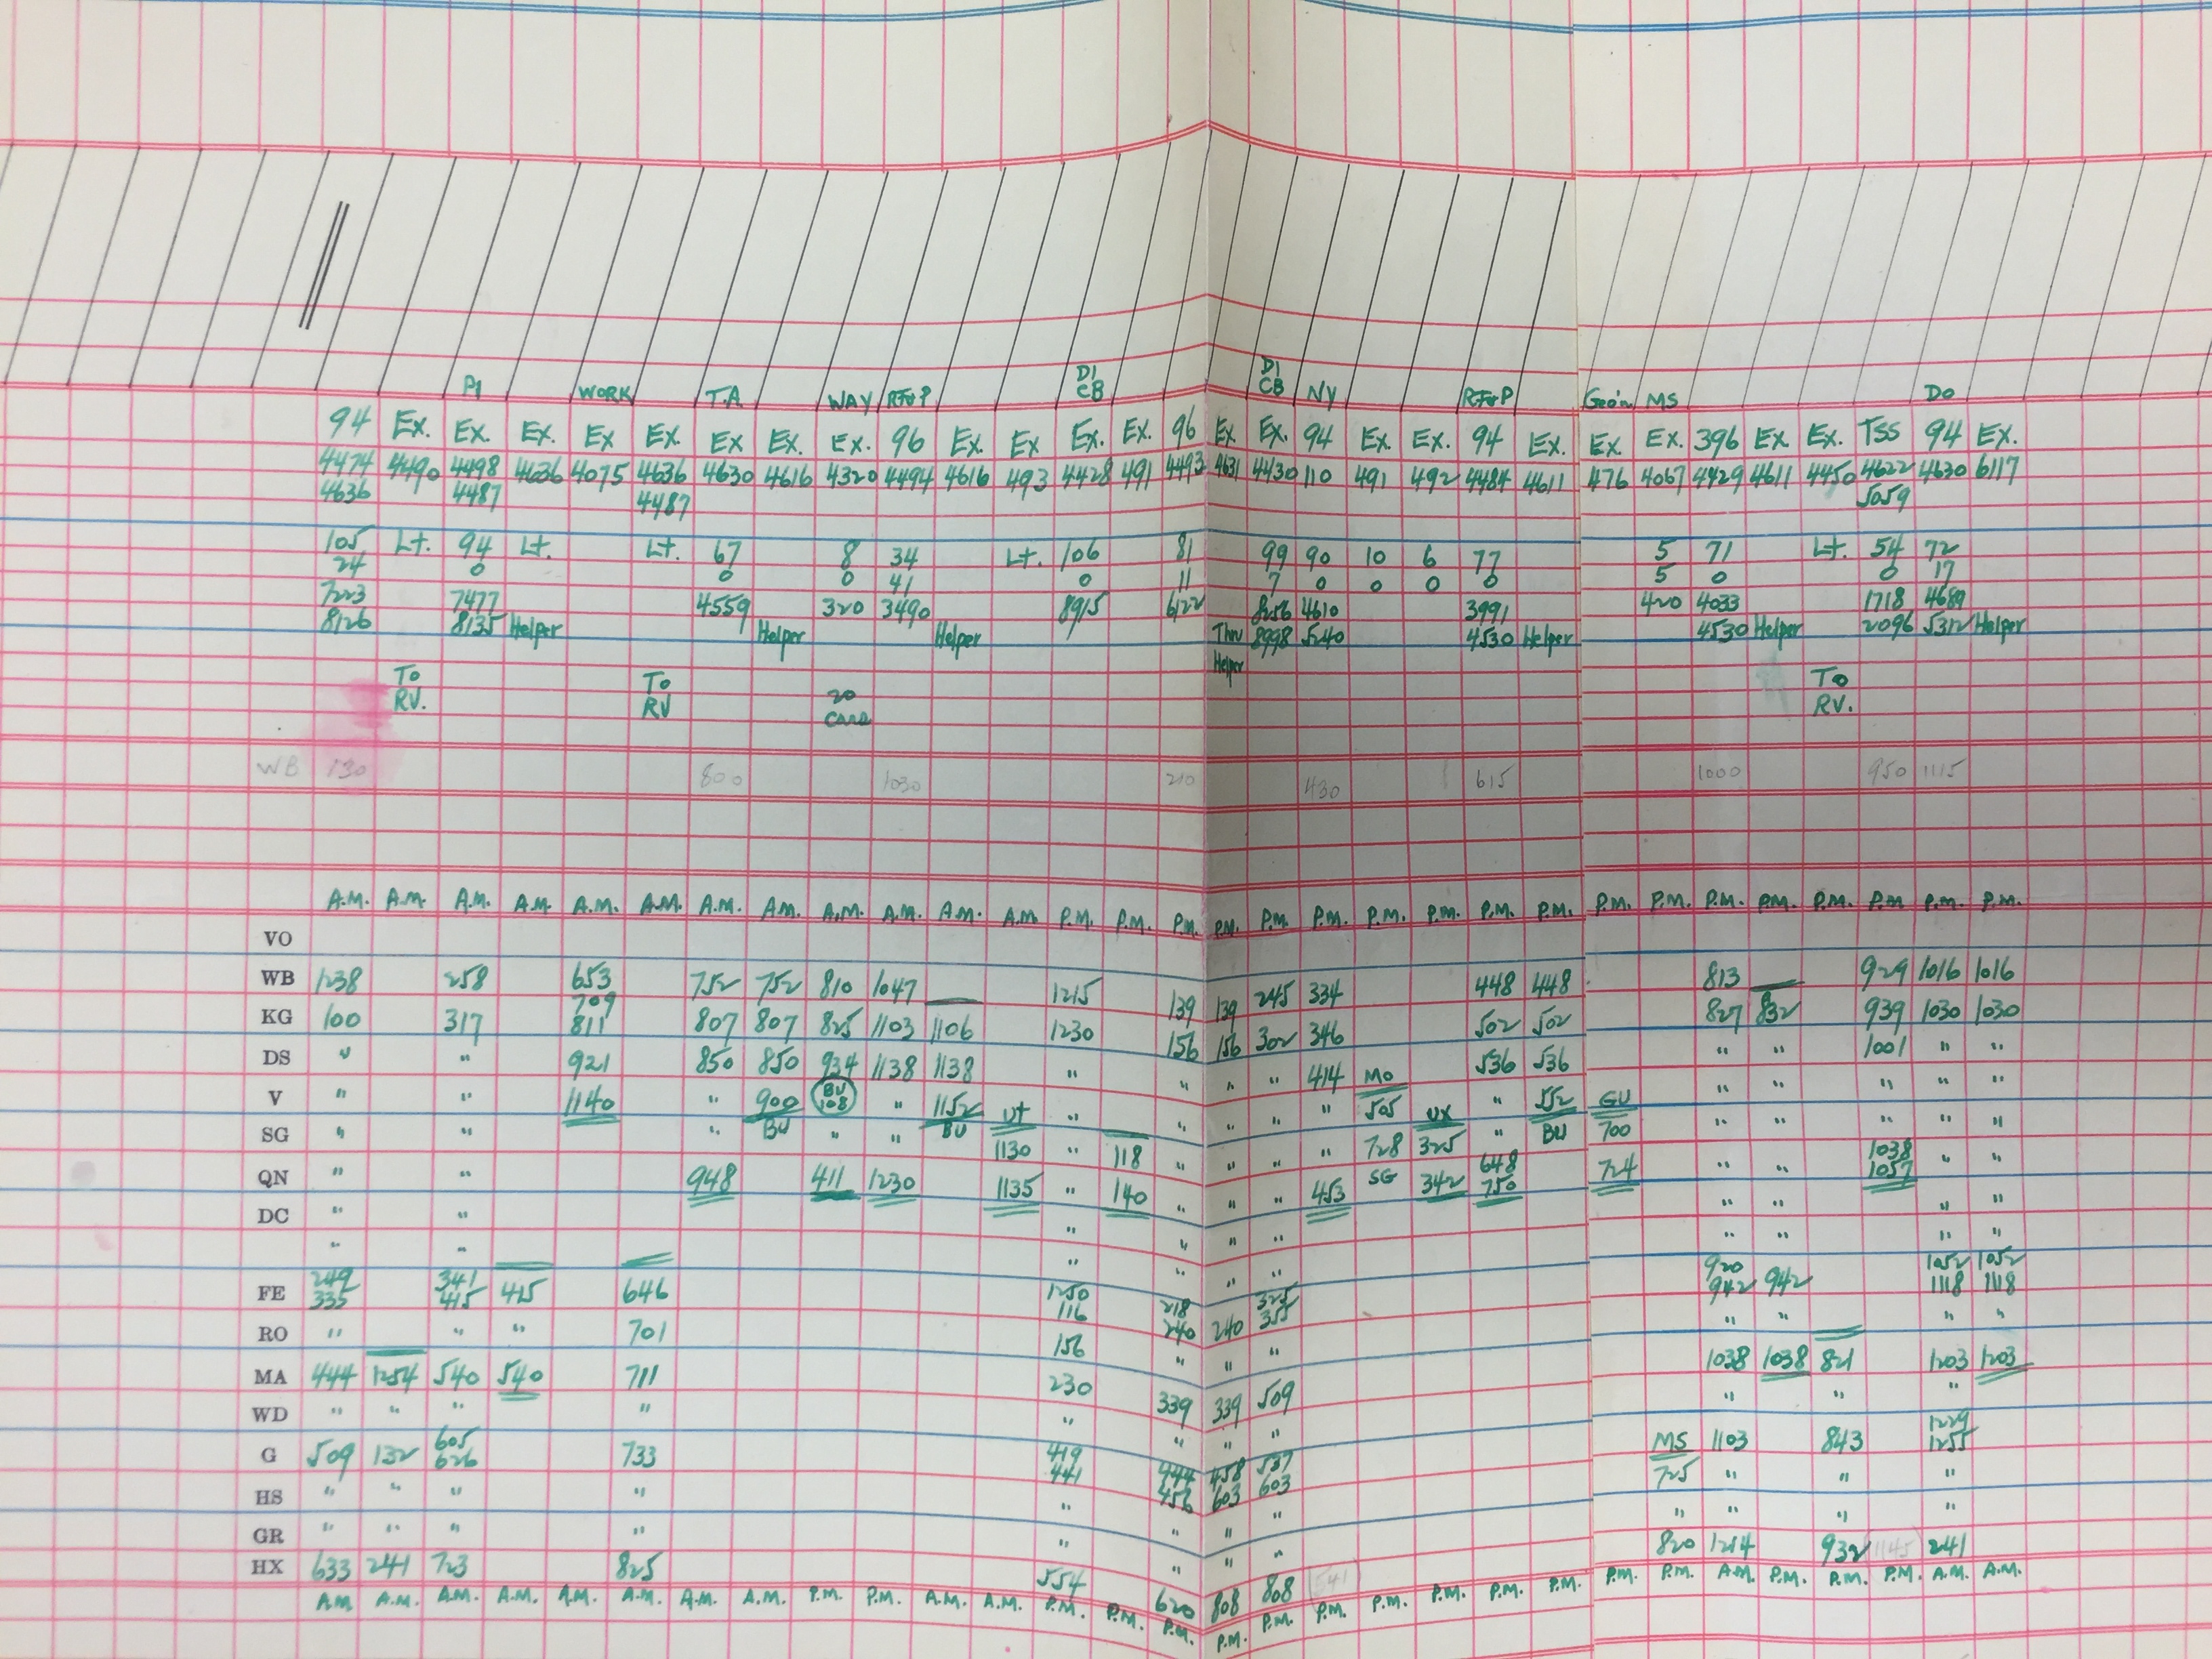 P1 WORK T.A. WAY RF&P D1 CB D1 CB NY RF&P MS DO
94 Ex. Ex. Ex. Ex Ex. Ex Ex. Ex. 96 Ex. Ex Ex. Ex. 96 Ex Ex. 94 Ex. Ex. 94 Ex. Ex. Ex. 396 Ex Ex. TSS 94 Ex.
4474 4490 4498 4636 4075 4636 4630 4616 4320 4494 4616 493 4428 491 4493 4631 4430 110 491 492 4484 4611 476 4067 4429 4611 4450 4622 4630 6117
4636 4487 4487 5059
105 Lt. 94 Lt. Lt. 67 8 34 Lt. 106 81 99 90 10 6 77 5 71 Lt. 54 72
24 0 0 0 41 0 11 7 0 0 0 0 5 0 0 17
7223 7477 4559 320 3490 8915 6122 8256 4610 3991 420 4033 1718 4689
8126 8135 Helper Helper Helper Thru Helper 8998 5240 4530 Helper 4530 Helper 2096 5312 Helper
To To 20 To
RV. RV Cars RV.
WB 130 800 1030 210 430 615 1000 950 1115
A.M. A.M. A.M. A.M. A.M. A.M. A.M. A.M. A.M. A.M. A.M. A.M. P.M. P.M. P.M. P.M. P.M. P.M. P.M. P.M. P.M. P.M. P.M. P.M. P.M. P.M. P.M. P.M. P.M. P.M.
VO
WB 1238 258 653 709 752 752 810 1047 1215 139 139 245 334 448 448 813 929 1016 1016
KG 100 317 811 807 807 825 1103 1106 1230 156 156 302 346 502 502 827 832 939 1030 1030
DS " " 921 850 850 934 1138 1138 " " " " 414 MO 536 536 " " 1001 " "
V " " 1140 " 900 BU 108 " 1152 UT " " " " " 505 UX " 552 GU " " " " "
SG " " " BU " " BU 1130 " 118 " " " " 728 325 " BU 700 " " 1038 " "
QN " " 948 411 1230 1135 " 140 " " " 453 SG 342 648 750 724 " " 1057 " "
DC " " " " " " " " " "
" " " " " "
FE 249 335 341 415 415 646 1250 116 218 240 240 325 355 920 942 942 1052 1118 1052 1118
RO " " " 701 156 " " " " " " "
MA 444 1254 540 540 711 230 339 339 509 1038 1038 821 1203 1203
WD " " " " " " " " " " "
G 509 132 605 626 733 419 441 444 456 458 603 537 603 MS 1103 843 1229 1255
HS " " " " " " " " 725 " " "
GR " " " " " " " " " " " "
HX 633 241 723 825 554 620 808 808 541 820 1214 932 1145 241
A.M. A.M. A.M. A.M. A.M. A.M. A.M. A.M. P.M. P.M. A.M. A.M. P.M. P.M. P.M. P.M. P.M. P.M. P.M. P.M. P.M. P.M. P.M. P.M. A.M. P.M. P.M. P.M. A.M. A.M.